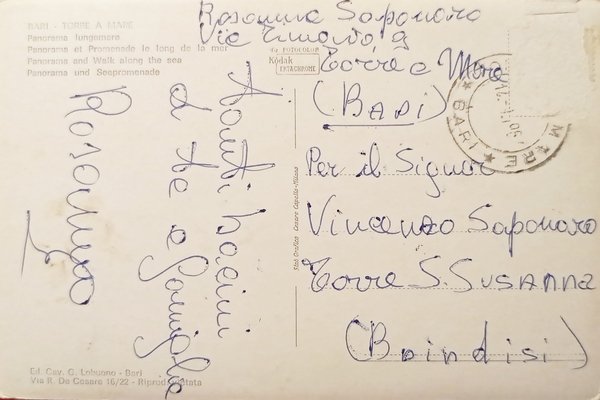 BARI - TORRE A MARE
Panorama lungomare
Panorama et Promenade le long de la mer
Panorama and Walk along the sea
Panorama und Seepromenade
FOTOCOLOR
Kodak
EKTACHROME
Rosanna Saponaro
Via 9
Torre a Mare
(BARI)
MARE
BARI
Tanti bacini
a te e famiglia
Rosanna
Per il Signor
Vincenzo Saponaro
Torre S. SUSANNA
(Brindisi)
Stab Grafico Cesare Capello - Milano
Ed. Cav. G. Lobuono - Bari
Via R. De Cesare 16/22 - Riprod. Vietata